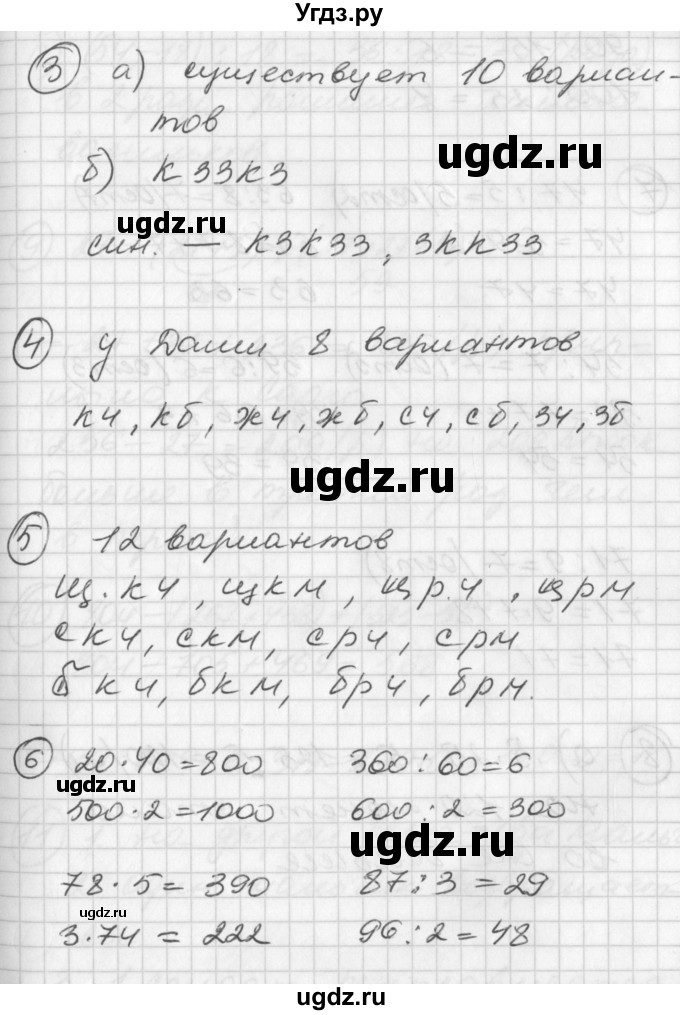 Угдз.ру
3 а) существует 10 вариан-
тов
ugdz.ru
б) кззкз
ugdz.ru
син. — кзкзз, зккзз
4 у Даши 8 вариантов
кч, кб, жч, жб, сч, сб, зч, зб
ugdz.ru
5 12 вариантов
щ.кч, щкм, щр.ч, щрм
скч, скм, срч, срм
бкч, бкм, брч, брм.
6 20·40=800 360:60=6
ugdz.ru
500·2=1000 600:2=300
ugdz.ru
78·5=390 87:3=29
ugdz.ru
3·74=222 96:2=48
ugdz.ru